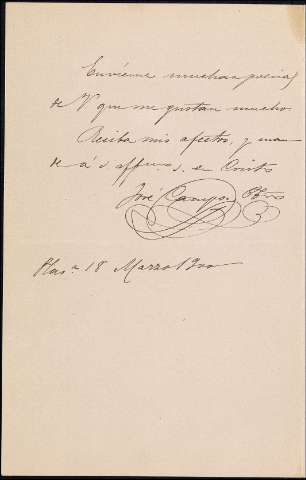 Envíeme muchas poesías
de V que me gustan mucho
Reciba mis afectos, y man-
de á s. affmo s. en Cristo
José Campo
18 Marzo 1900